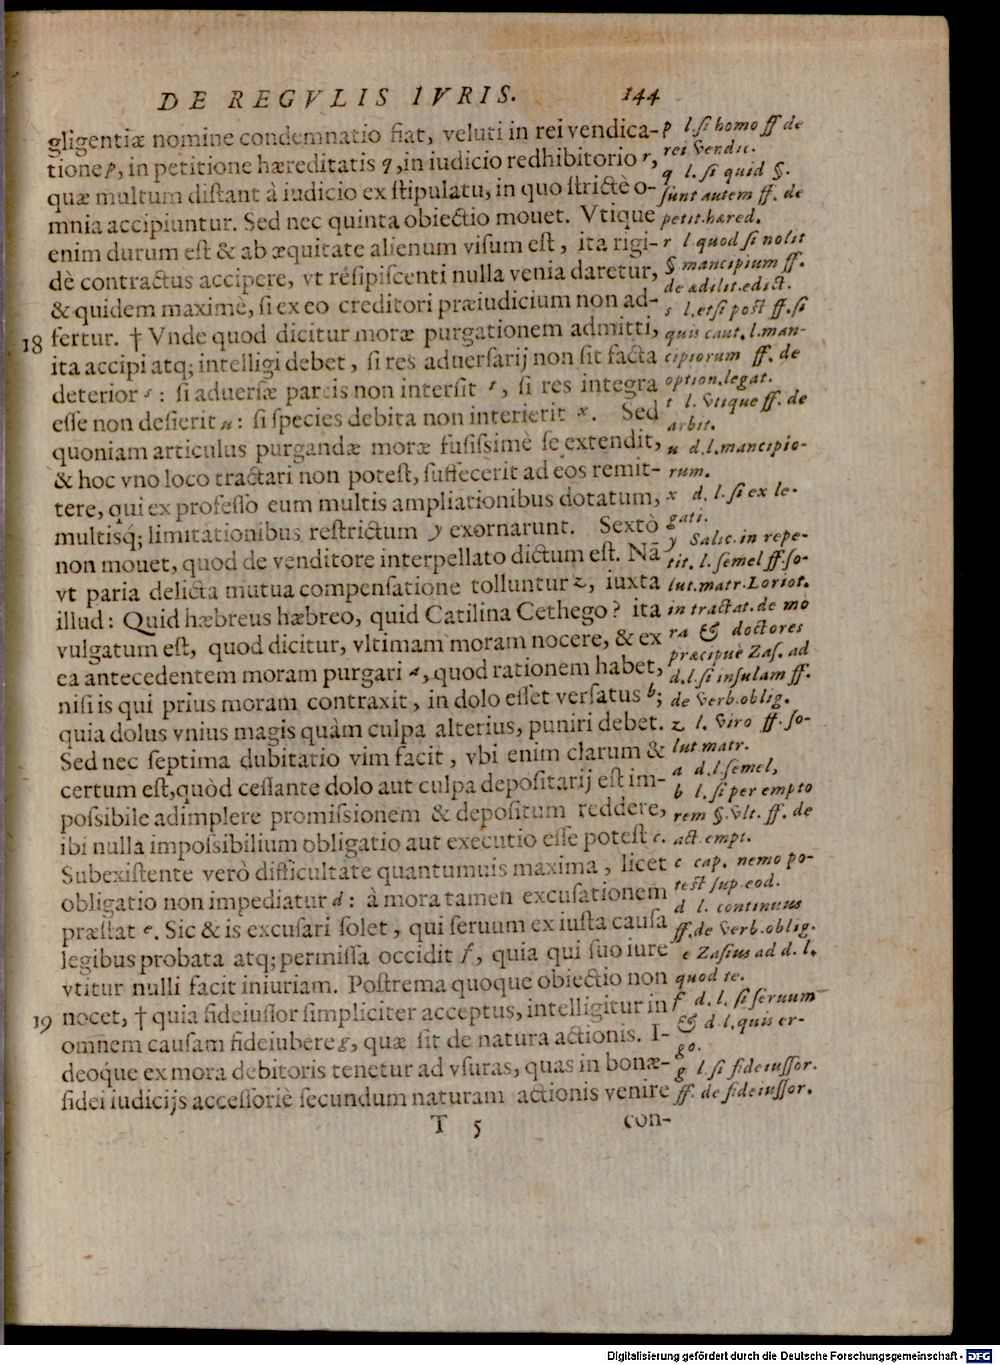 DE REGVLIS IVRIS. 144
gligentiæ nomine condemnatio fiat, veluti in rei vendica-
tione p, in petitione hæreditatis q, in iudicio redhibitorio r,
quæ multum distant à iudicio ex stipulatu, in quo strictè o-
mnia accipiuntur. Sed nec quinta obiectio mouet. Vtique
enim durum est & ab æquitate alienum visum est, ita rigi-
dè contractus accipere, vt résipiscenti nulla venia daretur,
& quidem maximè, si ex eo creditori præiudicium non ad-
18 fertur. † Vnde quod dicitur moræ purgationem admitti,
ita accipi atq; intelligi debet, si res aduersarij non sit facta
deterior s: si aduersæ partis non intersit t, si res integra
esse non desierit u: si species debita non interierit x. Sed
quoniam articulus purgandæ moræ fusissimè se extendit,
& hoc vno loco tractari non potest, suffecerit ad eos remit-
tere, qui ex professo eum multis ampliationibus dotatum,
multisq́; limitationibus restrictum y exornarunt. Sextò
non mouet, quod de venditore interpellato dictum est. Nā
vt paria delicta mutua compensatione tolluntur z, iuxta
illud: Quid hæbreus hæbreo, quid Catilina Cethego? ita
vulgatum est, quod dicitur, vltimam moram nocere, & ex
ea antecedentem moram purgari a, quod rationem habet,
nisi is qui prius moram contraxit, in dolo esset versatus b;
quia dolus vnius magis quàm culpa alterius, puniri debet.
Sed nec septima dubitatio vim facit, vbi enim clarum &
certum est, quòd cessante dolo aut culpa depositarij est im-
possibile adimplere promissionem & depositum reddere,
ibi nulla impossibilium obligatio aut executio esse potest c.
Subexistente verò difficultate quantumuis maxima, licet
obligatio non impediatur d: à mora tamen excusationem
præstat e. Sic & is excusari solet, qui seruum ex iusta causa
legibus probata atq; permissa occidit f, quia qui suo iure
vtitur nulli facit iniuriam. Postrema quoque obiectio non
19 nocet, † quia fideiussor simpliciter acceptus, intelligitur in
omnem causam fideiubere g, quæ sit de natura actionis. I-
deoque ex mora debitoris tenetur ad vsuras, quas in bonæ-
fidei iudicijs accessoriè secundum naturam actionis venire
T 5 con-
p l. si homo ff de
rei vendic.
q l. si quid §.
sunt autem ff. de
petit. hæred.
r l quod si nolit
§. mancipium ff.
de ædilit. edict.
s l. etsi post ff. si
quis caut. l. man-
cipiorum ff. de
option. legat.
t l. Vtique ff. de
arbit.
u d. l. mancipio-
rum.
x d. l. si ex le-
gati.
y Salic. in repe-
tit. l. semel ff. so-
lut. matr. Loriot.
in tractat. de mo
ra & doctores
præcipuè Zas. ad
d. l. si insulam ff.
de verb. oblig.
z l. Viro ff. so-
lut matr.
a d. l. semel,
b l. si per empto
rem §. vlt. ff. de
act. empt.
c cap. nemo po-
test sup. eod.
d l. continuus
ff. de verb. oblig.
e Zasius ad d. l.
quod te.
f d. l. si seruum
& d. l. quis er-
go.
g l. si fideiussor.
ff. de fideiussor.
Digitalisierung gefördert durch die Deutsche Forschungsgemeinschaft - DFG